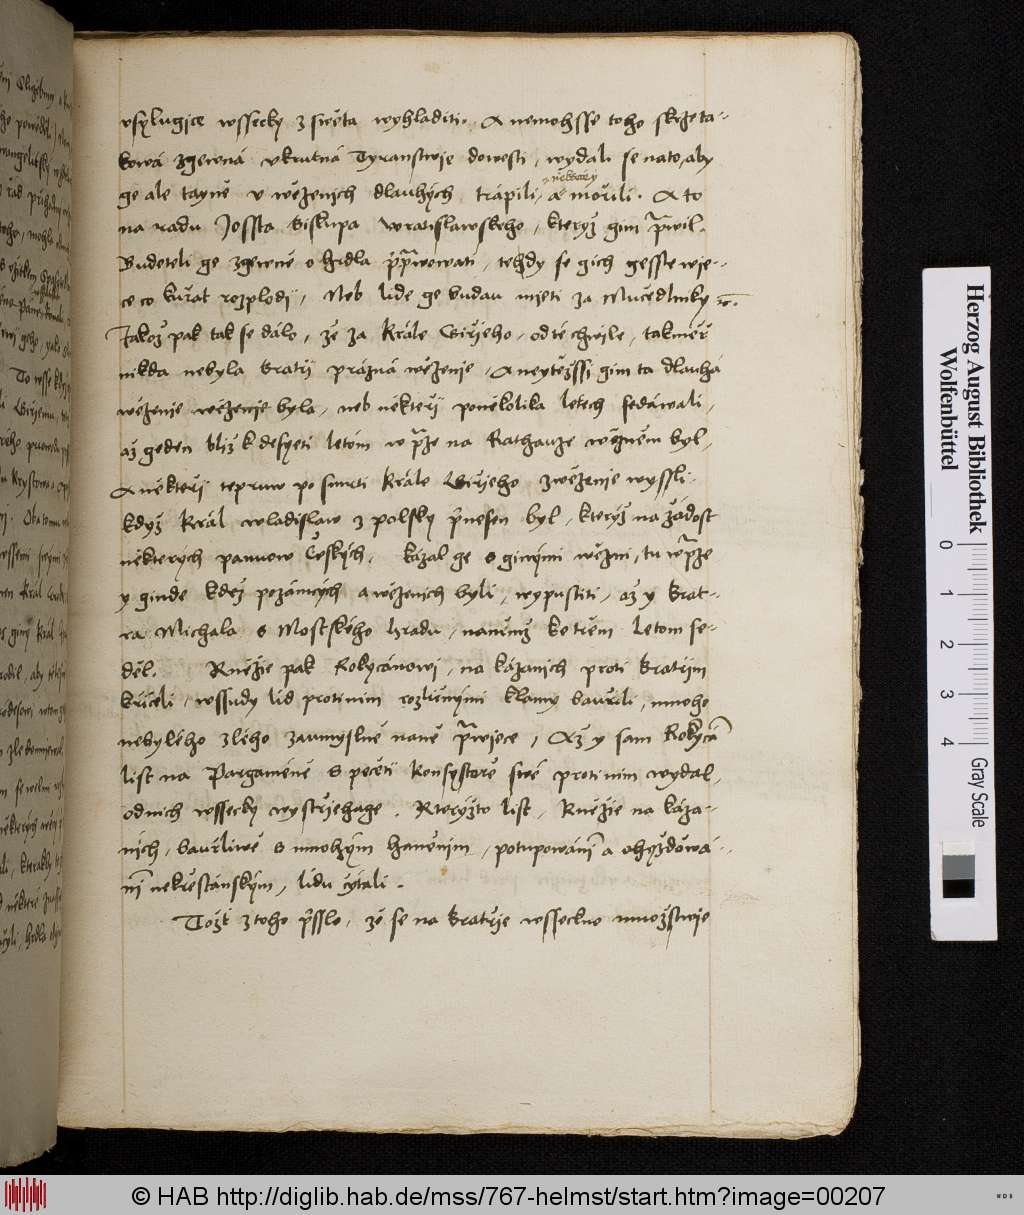 vsylugjce wssecky z swěta wyhladiti. A nemohsse toho skrze ta-
kowá zgewná vkrutná Tyranstwie dowesti, wydali se nato, aby
některy
ge ale tayně v wězenich dlauhých trápili, a mořili. A to
na radu Jossta Biskupa Wratislawskeho, kteryž gim prawil.
Budeteli ge zgewně o hrdla připrawowati, tehdy se gich gesste wje-
ce co kuřat rozplodij, Neb lide ge budau mjeti za Mučedlnky etc.
Jakož pak tak se dálo, že za Krále Giřjeho, od té chwile, takměř
nikda nebyla Bratřij prázná wězenje, A neytěžssi gim ta dlauhá
wězenie wězenie byla, neb někteřij poněkolika letech sedáwali,
až geden bliž k desyeti letóm w prze na Rathauze wězněm byl,
A někteřij teprvw po smrti Krále Giřjeho z wězenie wyssli.
kdyz Král wladislaw z polsky přnesen byl, kterýž na žádost
některych panuow Českých, kázal ge s ginými wězni, tu w prze
y ginde kdež pozámcých a wězenich byli, wypustiti, až y Brat-
ra Michala s Mostského hradu, na němž ke třem letom se-
děl. Kněžie pak Rokycánowi, na kázanich proti Bratřim
křičeli, wssudy lid proti nim rozličnými klamy bauřili, mnoho
nebylého zlého zaumyslně naně prawjece, Až y sam Rokycá
list na Pargaméně s pečeti Konsystoře swé proti nim wydal,
od nich wssecky wystřjehage. Kterýžto list, Kněžie na káza-
nich, bauřliwě s mnohým haněním, potupowáni a ohyzdowá-
ni nekřestánským, lidu čytali.
Tožt z toho přsslo, že se na Bratřje wsseckno množstwie
Herzog August Bibliothek
Wolfenbüttel
0 1 2 3 4 Gray Scale
© HAB http://diglib.hab.de/mss/767-helmst/start.htm?image=00207